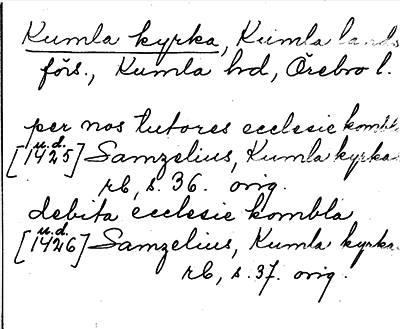 Kumla kyrka, Kumla lands
förs., Kumla hd, Örebro l.
per nos tutores ecclesie kombla
u.d.
[1425] Samzelius, Kumla kyrka.
rb, s. 36. orig.
debita ecclesie kombla
u.d.
[1426] Samzelius, Kumla kyrka.
rb, s. 37. orig.